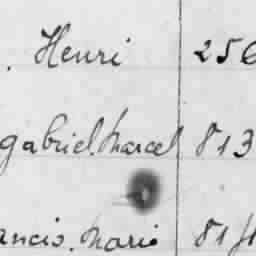 . Henri 256
gabriel. Marcel 813
ancis. Marie 814